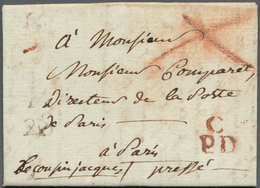 à Monsieur
Monsieur Comparet,
Directeur de la Poste
de Paris
à Paris
Le cousin jacques pressé
C
P.D